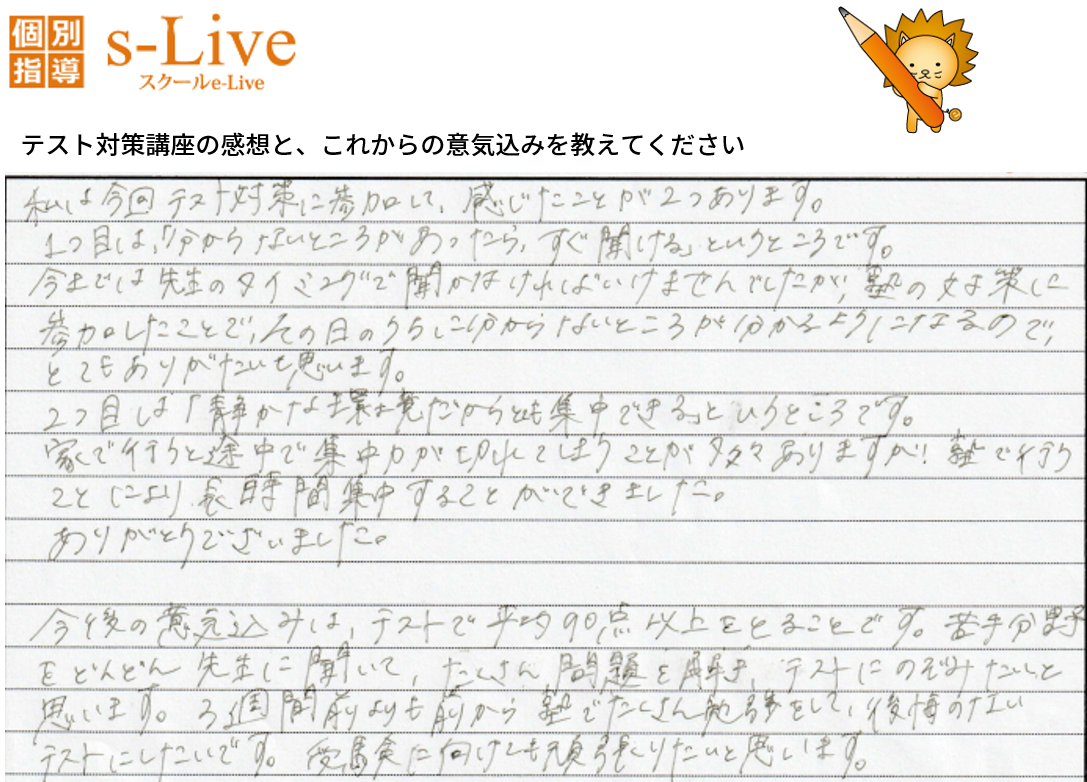 個別
指導
s-Live
スクールe-Live
テスト対策講座の感想と、これからの意気込みを教えてください
私は今回テスト対策に参加して、感じたことが2つあります。
1つ目は、「分からないところがあったら、すぐ聞ける」というところです。
今までは先生のタイミングで聞かなければいけませんでしたが、塾の対策に
参加したことで、その日のうちに分からないところが分かるようになるので、
とてもありがたいと思います。
2つ目は「静かな環境だからとても集中できる」というところです。
家で行うと途中で集中力が切れてしまうことが多々ありますが、塾で行う
ことにより長時間集中することができました。
ありがとうございました。
今後の意気込みは、テストで平均90点以上をとることです。苦手分野
をどんどん先生に聞いて、たくさん問題を解き、テストにのぞみたいと
思います。3週間前よりも前から塾でたくさん勉強をして、後悔のない
テストにしたいです。受験に向けても頑張りたいと思います。